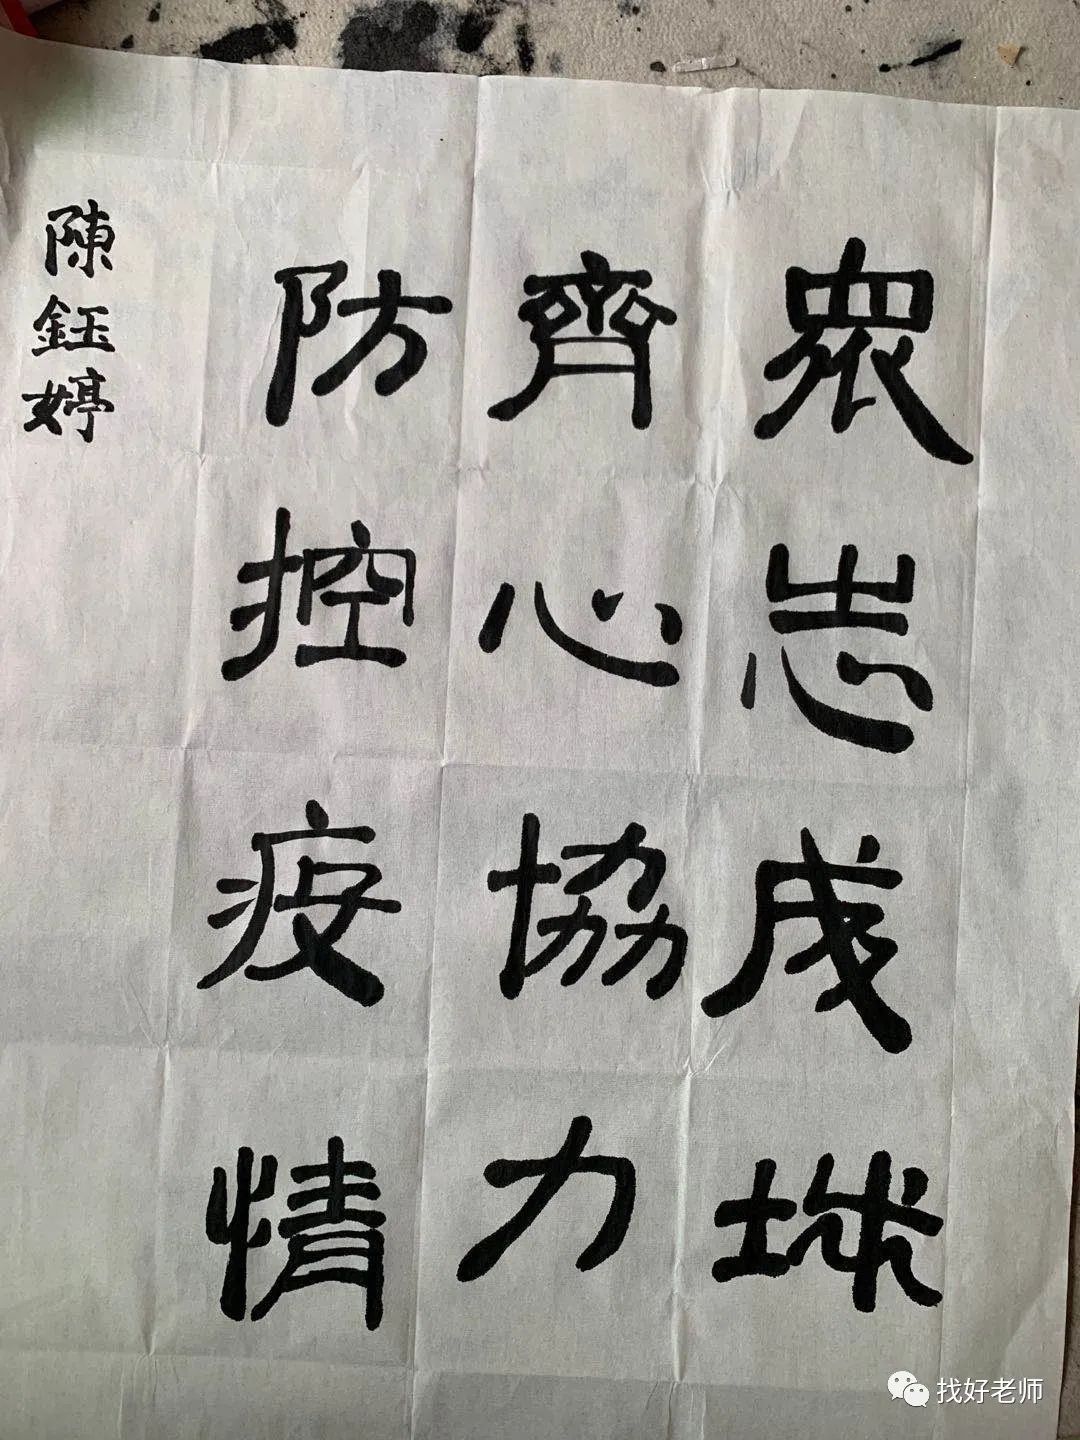 眾志成城
齊心協力
防控疫情
陳鈺婷
找好老师